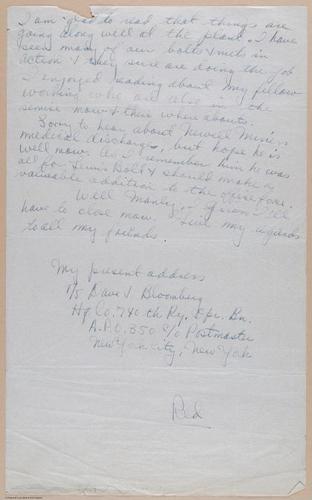 I am glad to read that things are
going along well at the plant. I have
seen many of our bolts & nuts in
action & they sure are doing the job
I enjoyed reading about my fellow
working who are also in the
service now & their where abouts.
Sorry to hear about Newell
medical discharge, but hope he is
well now. As I remember him he was
all for Lewis Bolt & should make a
valuable addition to the
Well Manley, I guess I'll
have to close now. Give my regards
to all my friends.
My present address
T/5 Dave V. Bloomberg
Hq Co. 740th Ry. Opr. Bn.
A.P.O. 350 c/o Postmaster
New York City, New York
Red